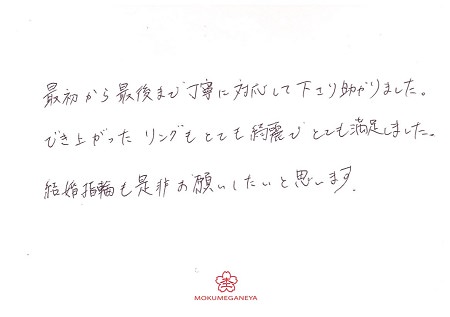 最初から最後まで丁寧に対応して下さり助かりました。
でき上がった リングもとても綺麗で とても満足しました。
結婚指輪も是非お願いしたいと思います.
MOKUMEGANEYA